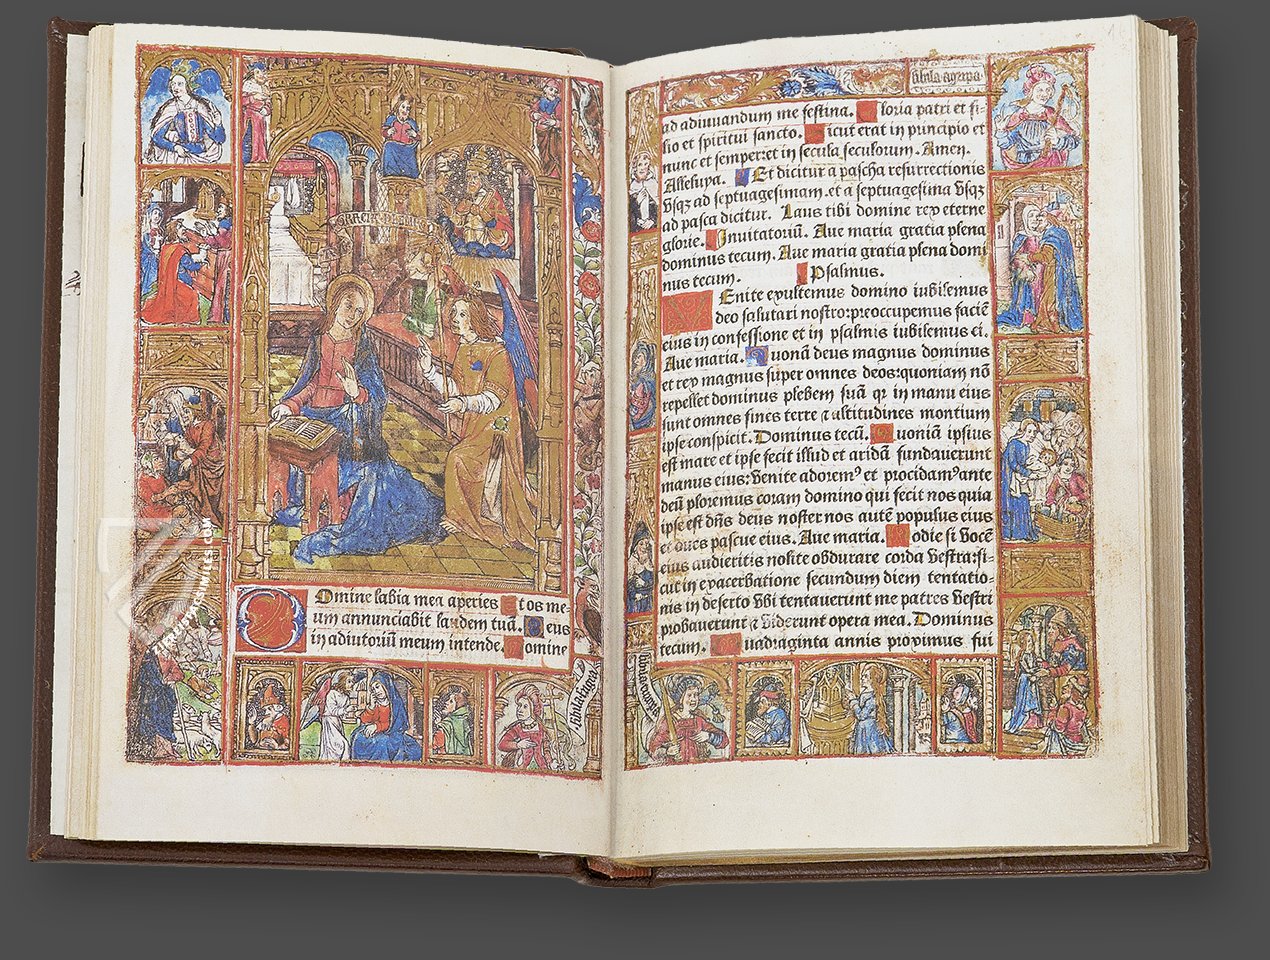 Omine labia mea aperies Et os me-
um annunciabit laudem tuā. Deus
in adiutoriū meum intende. Domine
sibila agripa
ad adiuuandum me festina. Gloria patri et fi-
lio et spiritui sancto. Sicut erat in principio et
nunc et semper: et in secula seculorum. Amen.
Alleluya. Et dicitur a pascha resurrectionis
Vsqz ad septuagesimam. et a septuagesina Vsqz
ad pasca dicitur. Laus tibi domine rex eterne
glorie. Inuitatoriū. Aue maria gratia plena
dominus tecum. Aue maria gratia plena domi
nus tecum. Psalmus.
Enite exultemus domino iubilemus
deo salutari nostro: preoccupemus faciē
eius in confessione et in psalmis iubilemus ei.
Aue maria. Quonā deus magnus dominus
et rex magnus super omnes deos: quoniam nō
repellet dominus plebem suā qr in manu eius
sunt omnes fines terre & altitudines montium
ipse conspicit. Dominus tecū. Quoniā ipsius
est mare et ipse fecit illud et aridā fundauerunt
manus eius: Venite adorem9 et procidam9 ante
deū ploremus coram domino qui fecit nos quia
ipse est dn̄s deus noster nos autē populus eius
et oues pascue eius. Aue maria. Hodie si Vocē
eius audieritis nolite obdurare corda Vestra: si-
cut in exacerbatione secundum diem tentatio-
nis in deserto Vbi tentauerunt me patres Vestri
probauerunt & Viderunt opera mea. Dominus
tecum. Quadraginta annis proximus fui